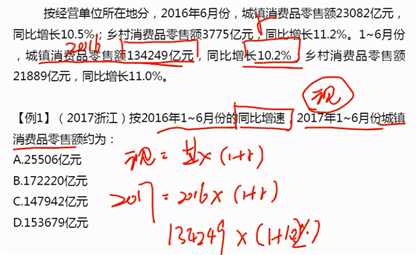 按经营单位所在地分，2016年6月份，城镇消费品零售额23082亿元，
同比增长10.5%；乡村消费品零售额3775亿元，同比增长11.2%。1~6月
份，城镇消费品零售额134249亿元，同比增长10.2%，乡村消费品零售额
21889亿元，同比增长11.0%。
2016
现
【例1】（2017浙江）按2016年1~6月份的同比增速，2017年1~6月份城镇
消费品零售额约为：
A.25506亿元
B.172220亿元
C.147942亿元
D.153679亿元
现 = 基×(1+r)
2017 = 2016×(1+r)
134249×(1+10.2%)